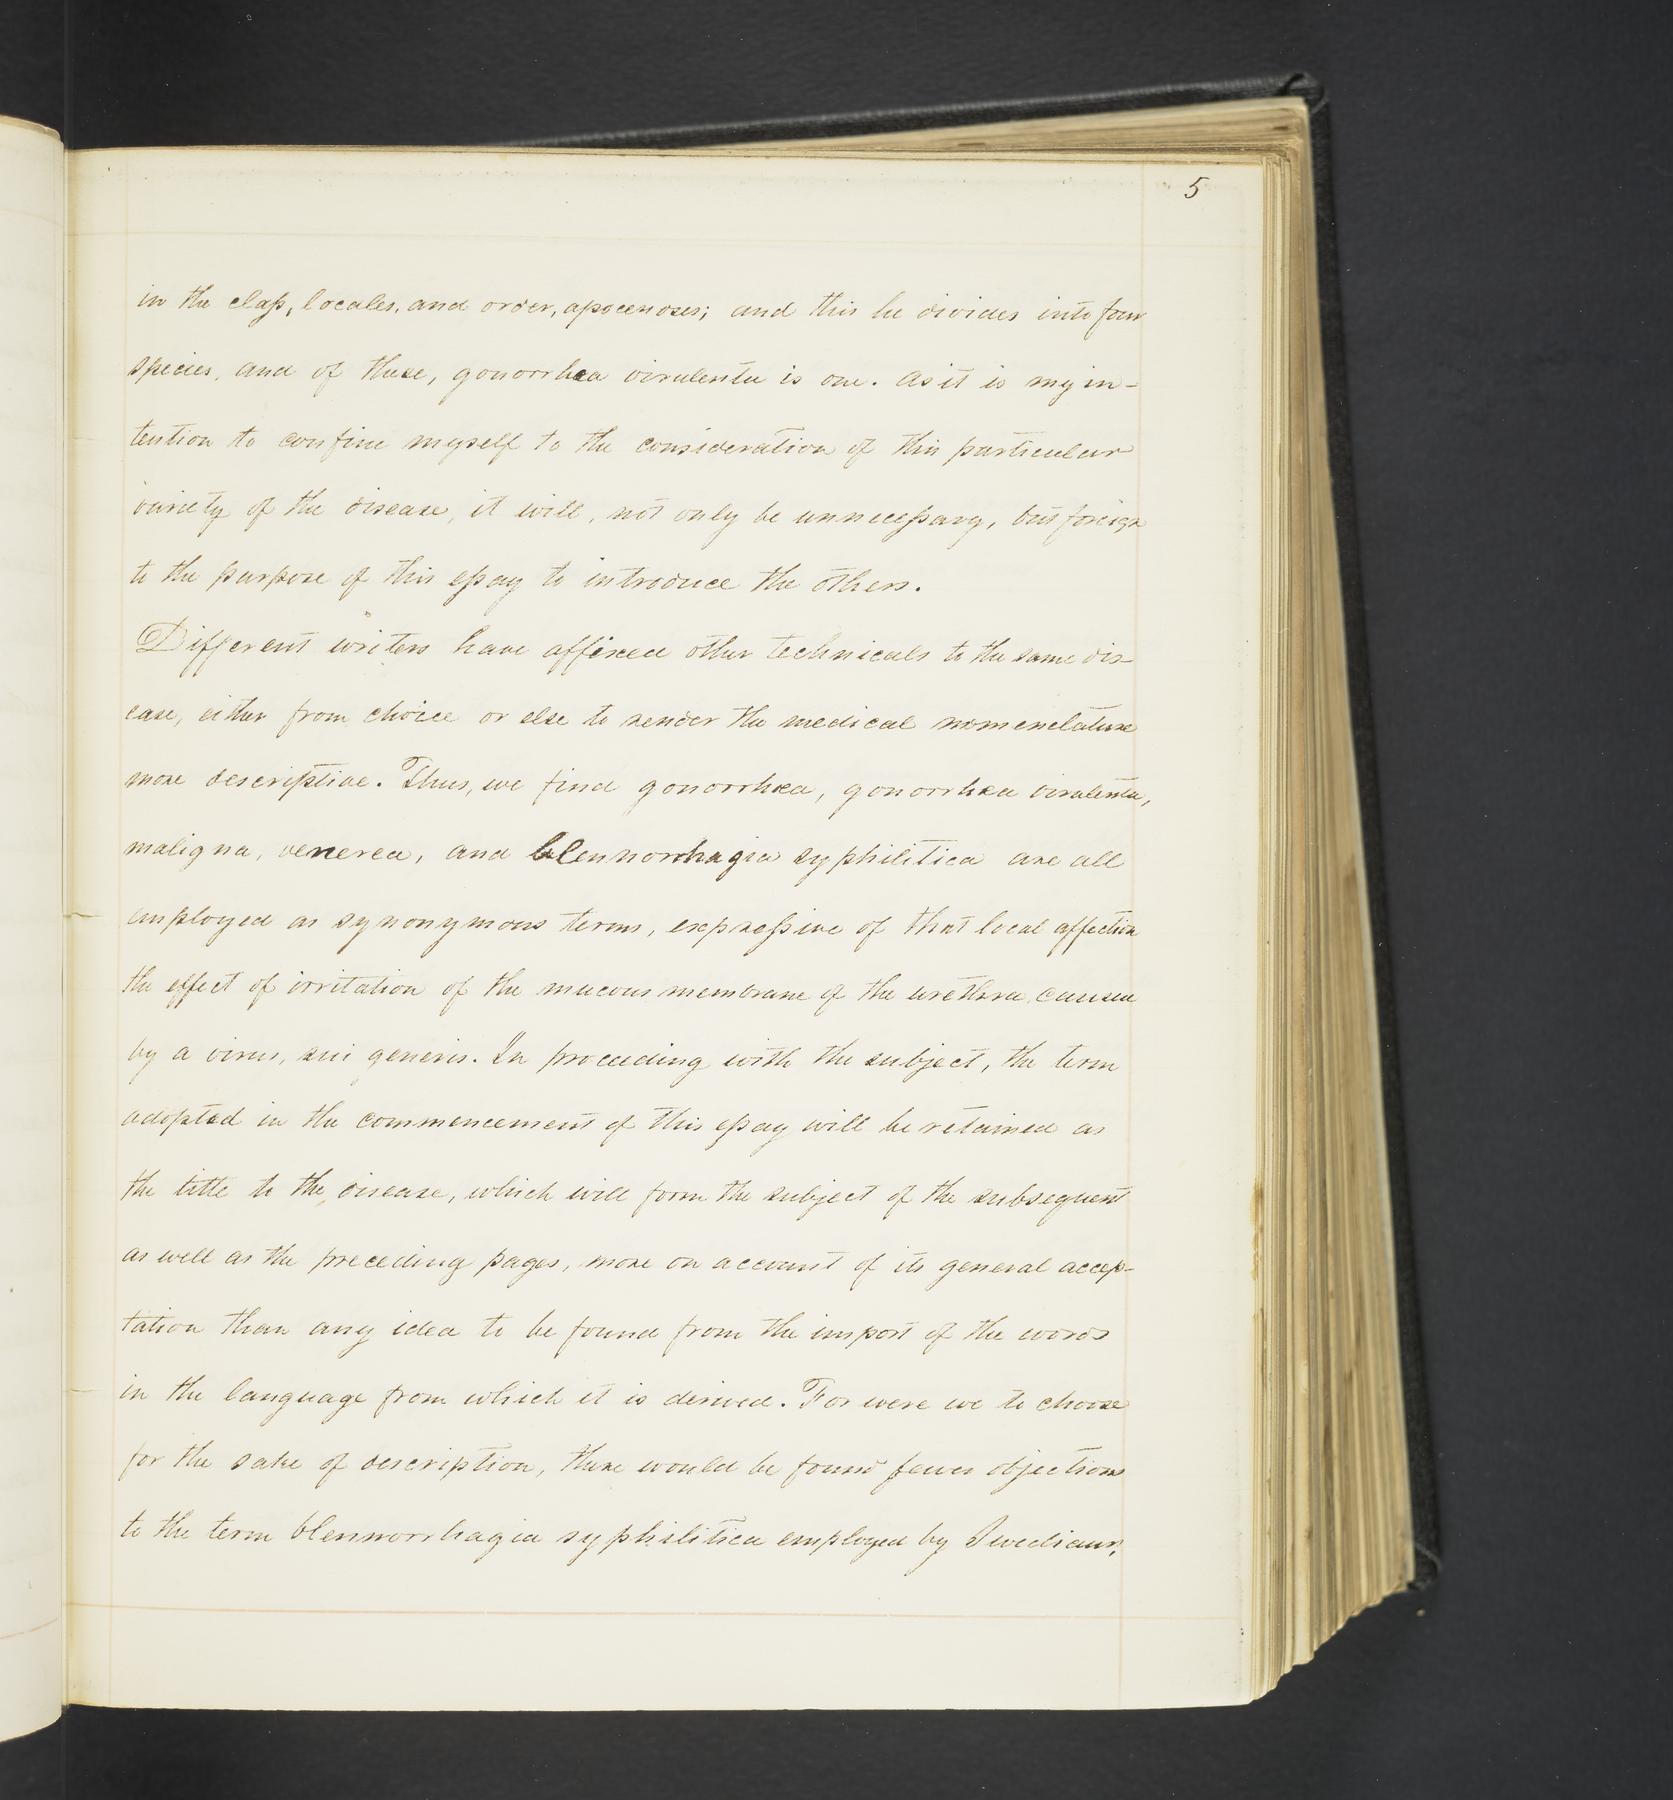 5
in the class, locales, and order, apocenoses; and this he divides into four
species, and of these, gonorrhœa virulenta is one. As it is my in-
tention to confine myself to the consideration of this particular
variety of the disease, it will, not only be unnecessary, but foreign
to the purpose of this essay to introduce the others.
Different writers have affixed other technicals to the same dis-
ease, either from choice or else to render the medical nomenclature
more descriptive. Thus, we find gonorrhœa, gonorrhœa virulenta,
maligna, venerea, and blennorrhagia syphilitica are all
employed as synonymous terms, expressive of that local affection
the effect of irritation of the mucous membrane of the urethra caused
by a virus, sui generis. In proceeding with the subject, the term
adopted in the commencement of this essay will be retained as
the title to the disease, which will form the subject of the subsequent
as well as the preceding pages, more on account of its general accep-
tation than any idea to be found from the import of the words
in the language from which it is derived. For were we to choose
for the sake of description, there would be found fewer objections
to the term blennorrhagia syphilitica employed by Swediaur,